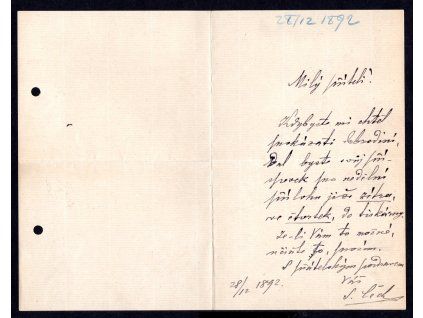 28/12 1892
Milý příteli!
Kdybyste mi chtěl
prokázati dobrodiní,
dal byste svůj pří-
spěvek pro nedělní
přílohu ještě zítra,
ve čtvrtek, do tiskárny.
Je-li Vám to možné,
učiňte to, prosím.
S přátelským pozdravem
Váš
S. Čech
28/12 1892.